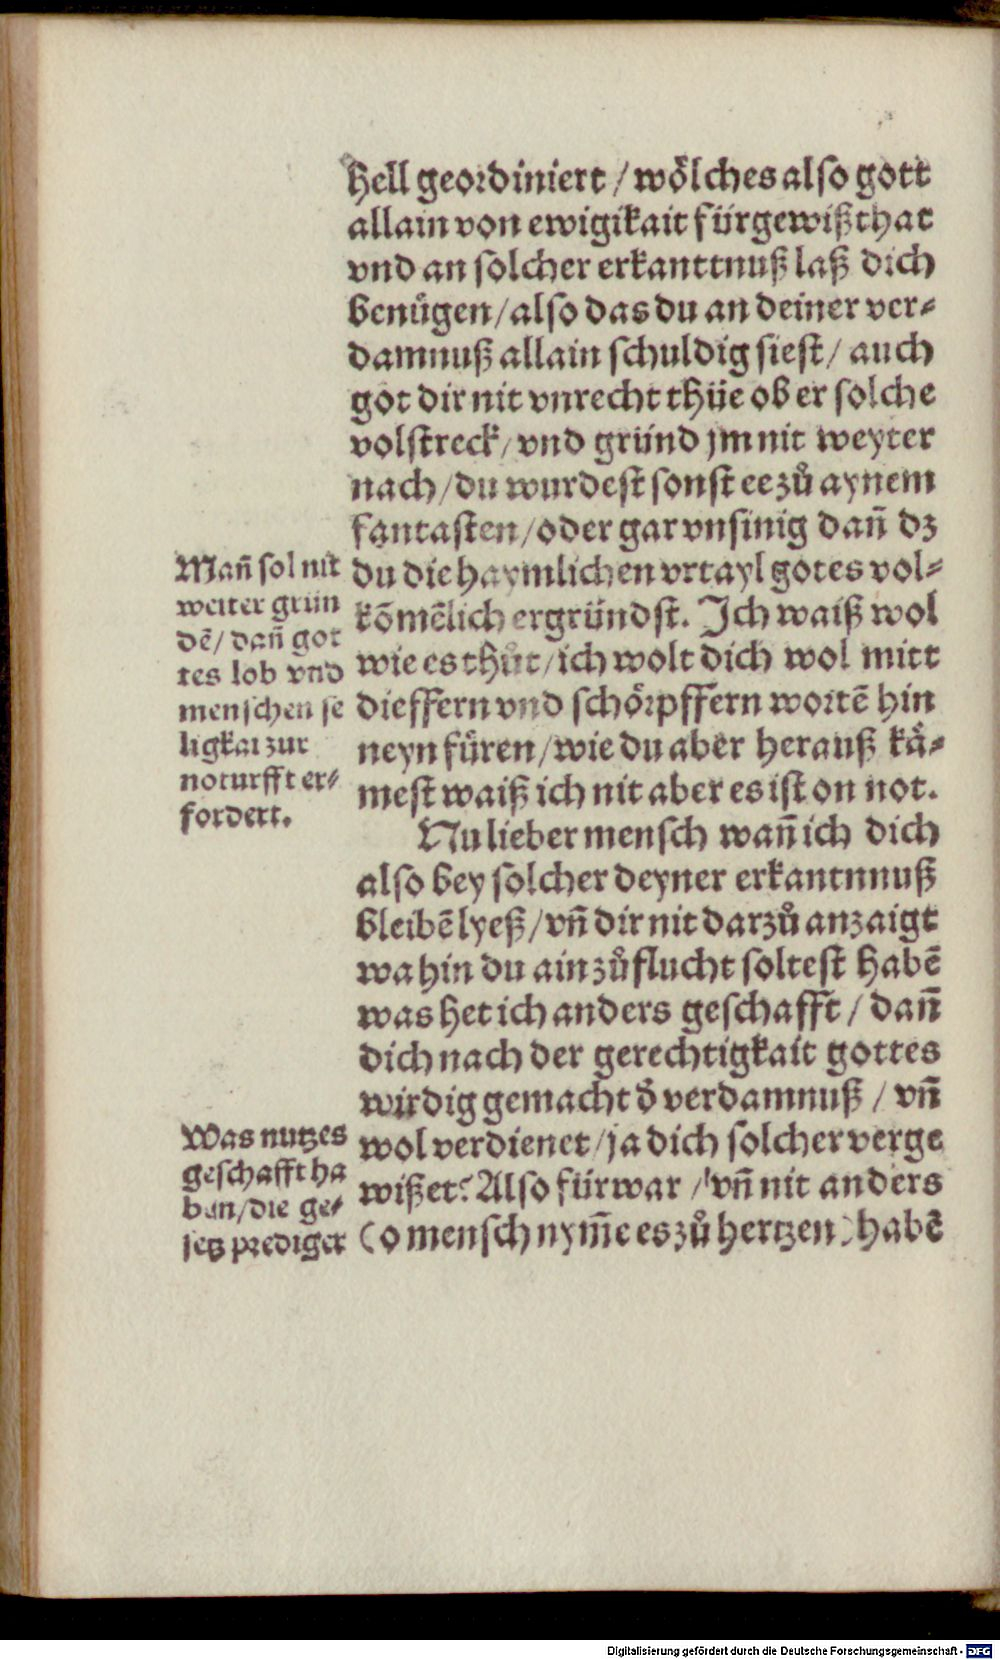 hell geordiniert / wölches also gott
allain von ewigikait fürgewißt hat
vnd an solcher erkanttnuß laß dich
benůgen / also das du an deiner ver⸗
damnuß allain schuldig siest / auch
got dir nit vnrecht thüe ob er solche
volstreck / vnd gründ jm nit weyter
nach / du wurdest sonst ee zů aynem
fantasten / oder gar vnsinig dañ dz
du die haymlichen vrtayl gotes vol⸗
kōmēlich ergründst. Ich waiß wol
wie es thůt / ich wolt dich wol mitt
dieffern vnd schörpffern wortē hin
neyn füren / wie du aber herauß kå⸗
mest waiß ich nit aber es ist on not.
Mañ sol nit
weiter grün
dē / dañ got
tes lob vnd
menschen se
ligkai zur
noturfft er⸗
fordert.
Nu lieber mensch wañ ich dich
also bey solcher deyner erkantnnuß
bleibē lyeß / vñ dir nit darzů anzaigt
wa hin du ain zůflucht soltest habē
was het ich anders geschafft / dañ
dich nach der gerechtigkait gottes
wirdig gemacht ð verdamnuß / vñ
wol verdienet / ja dich solcher verge
wißet? Also fürwar / vñ nit anders
(o mensch nym̄e es zů hertzen) habē
Was nutzes
geschafft ha
ban / die ge⸗
setz prediger
Digitalisierung gefördert durch die Deutsche Forschungsgemeinschaft - DFG